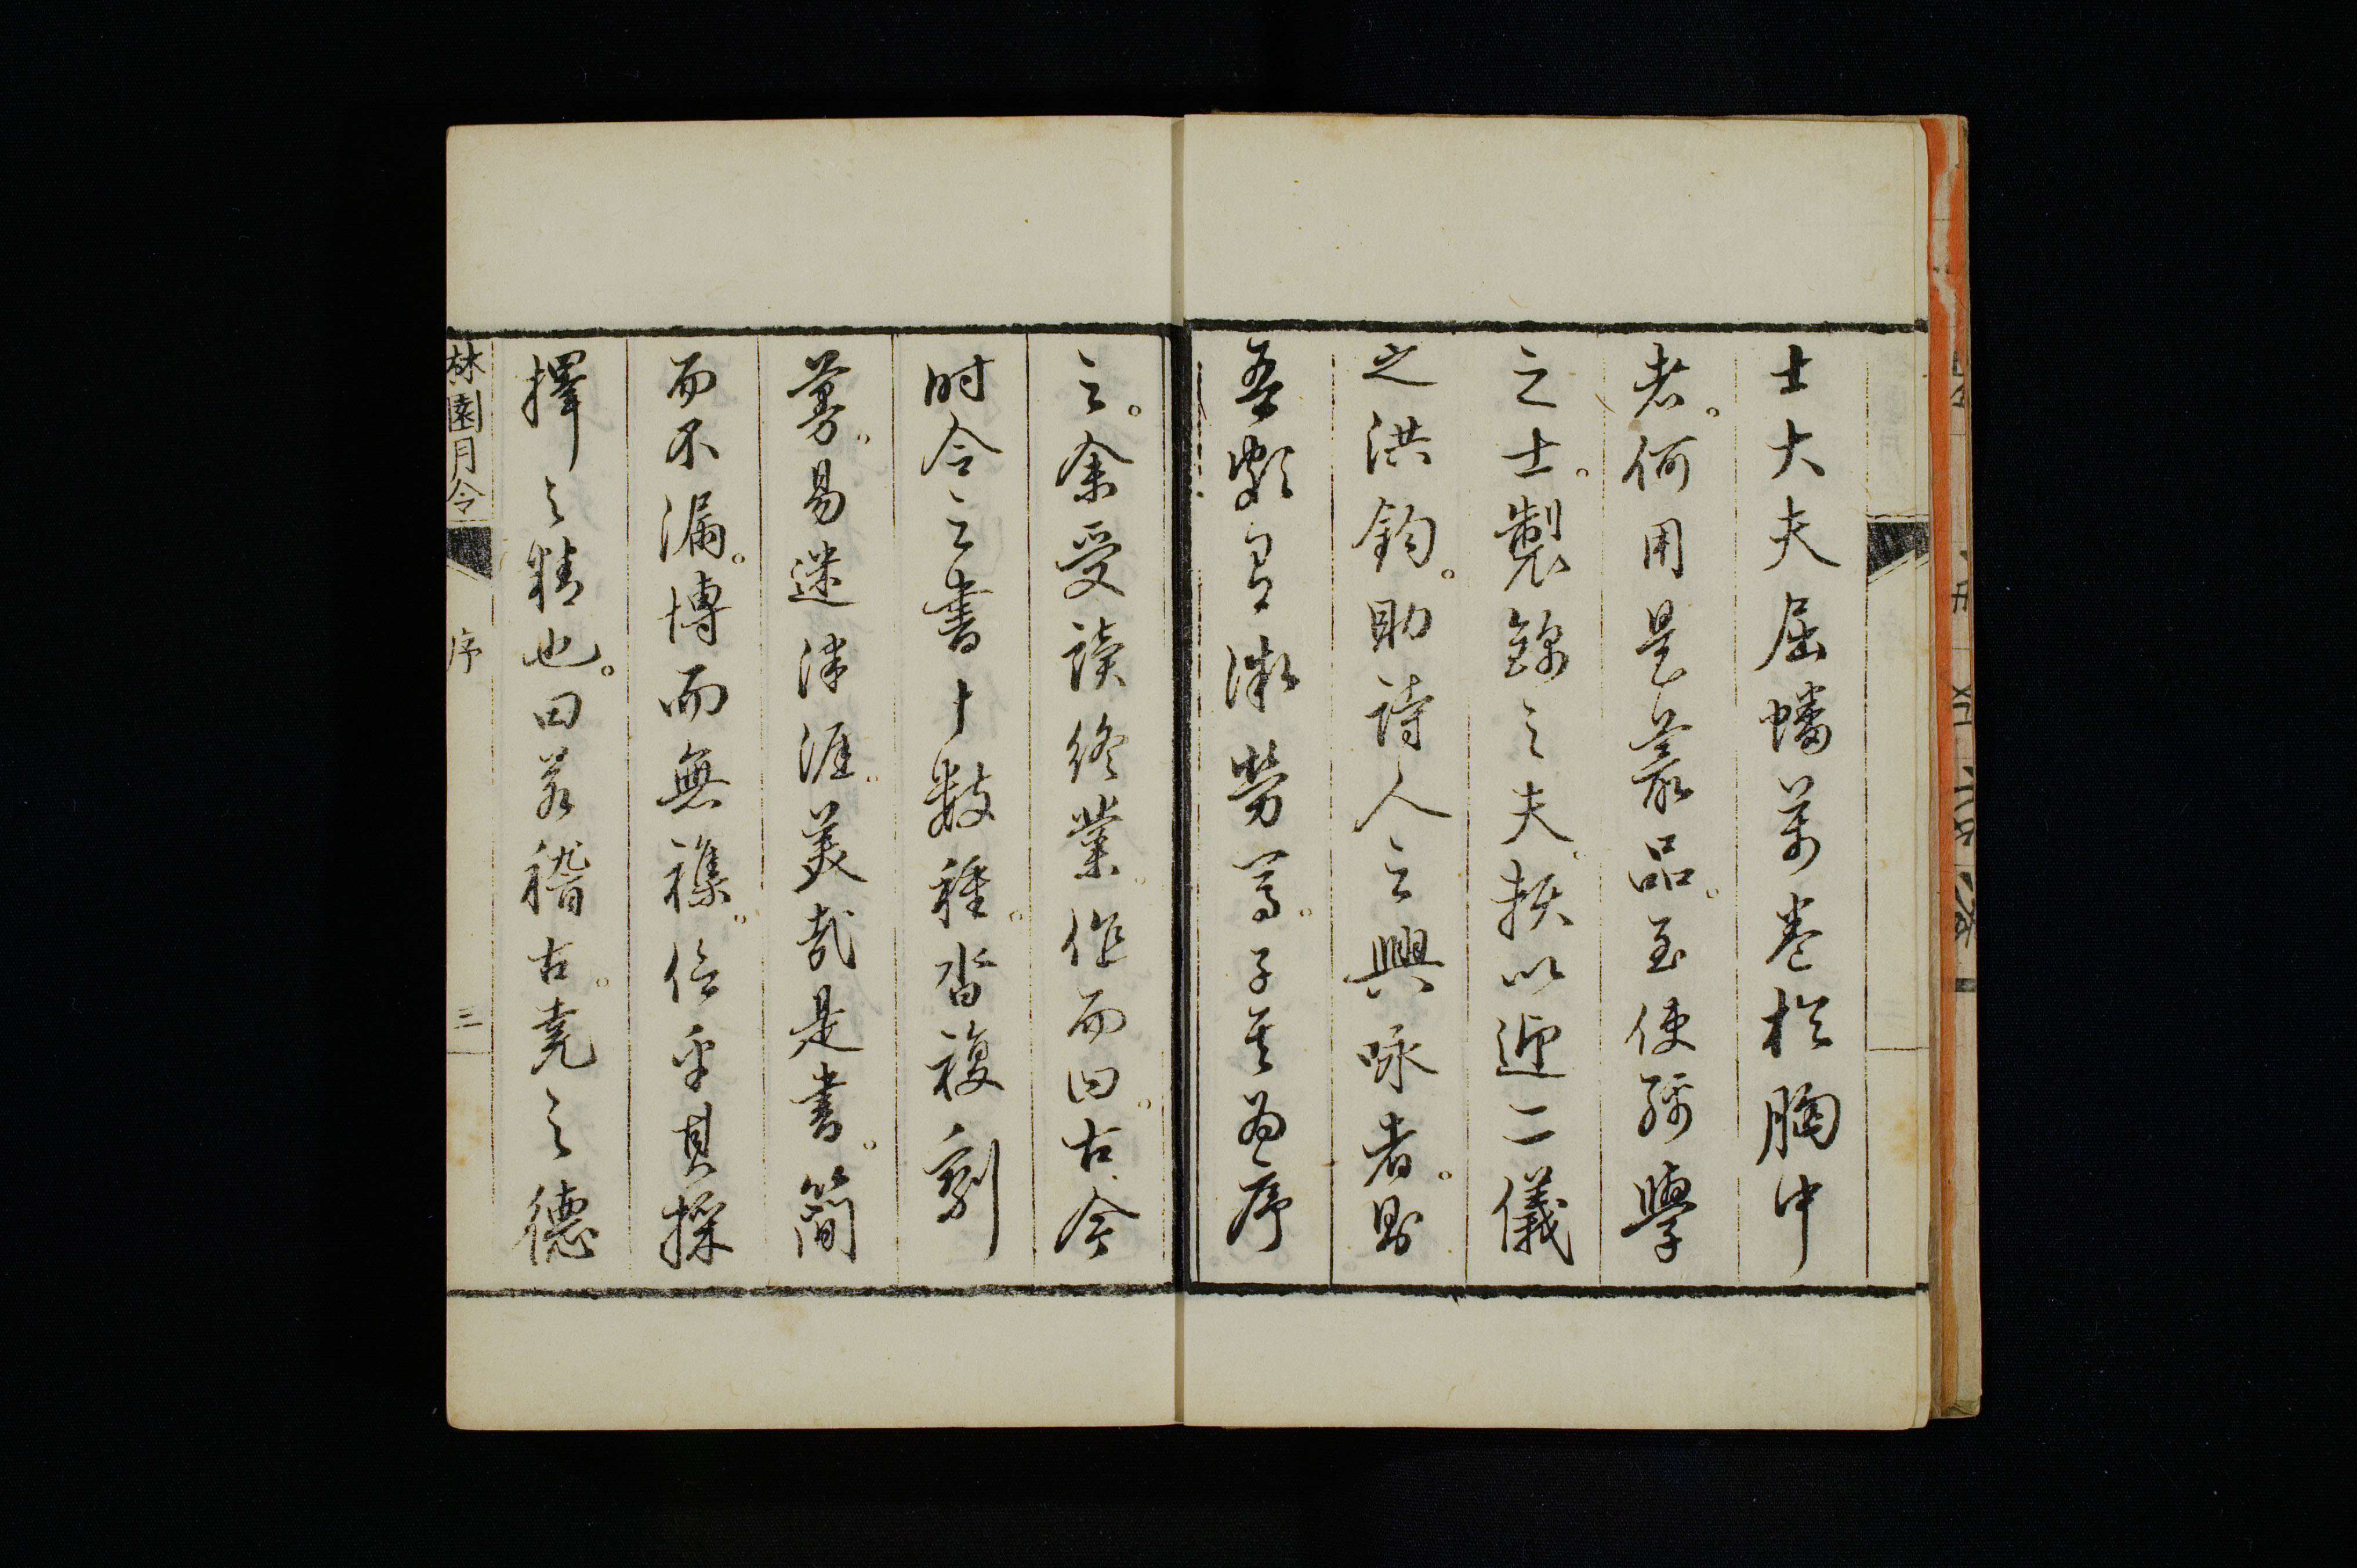 士大夫屈蟠萬卷於胸中
者。何用是叢品。至使孺學
之士。製錦之夫。挾以迎二儀
之洪鈞。助詩人之興咏者。則
吾輿有微勞焉。子其為序
之。余受讀終業。作而曰。古今
时令之書十數種。沓複剩
蔓。易迷津涯。美哉是書。簡
而不漏。博而無襍。信乎其採
擇之精也。曰若稽古。堯之德
林園月令
序
三